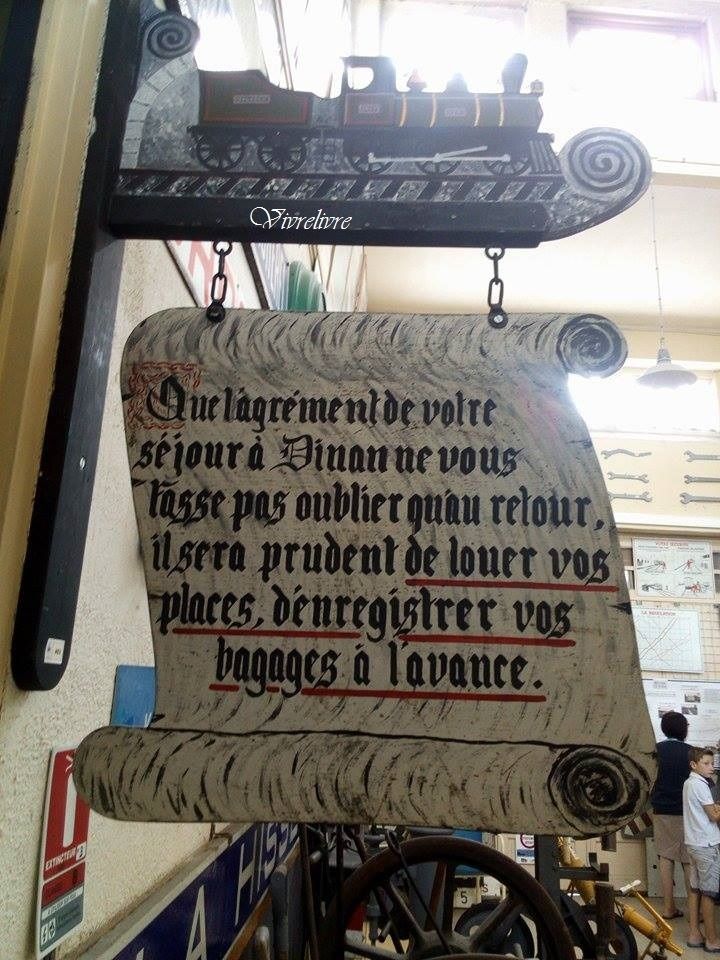 Vivrelivre
Que l'agrément de votre
séjour à Dinan ne vous
fasse pas oublier qu'au retour,
il sera prudent de louer vos
places, d'énregistrer vos
bagages à l'avance.
EXTINCTEUR
LA HISSE
5